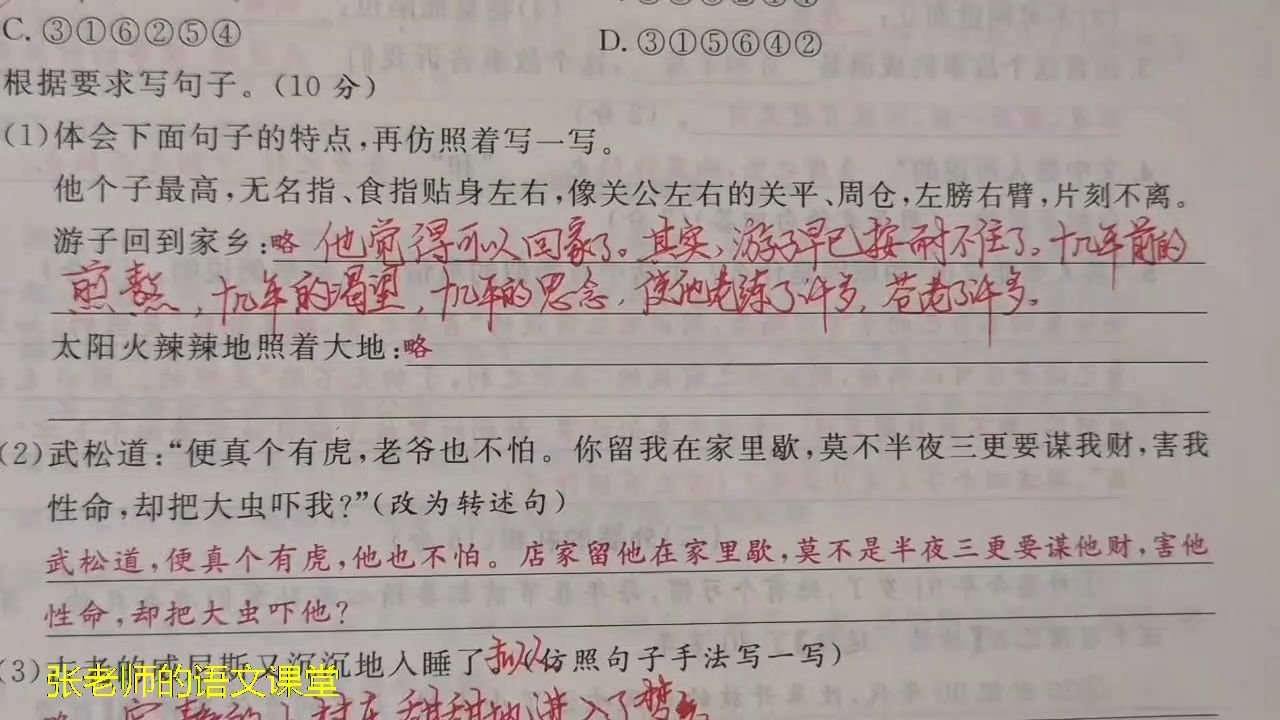 C. ③①⑥②⑤④
D. ③①⑤⑥④②
根据要求写句子。(10 分)
(1)体会下面句子的特点,再仿照着写一写。
他个子最高,无名指、食指贴身左右,像关公左右的关平、周仓,左膀右臂,片刻不离。
游子回到家乡:略 他觉得可以回家了。其实,游子早已按耐不住了。十几年前的
煎熬,十几年的渴望,十几年的思念,使他老练了许多,苍老了许多。
太阳火辣辣地照着大地:略
(2)武松道:“便真个有虎,老爷也不怕。你留我在家里歇,莫不半夜三更要谋我财,害我
性命,却把大虫吓我?”(改为转述句)
武松道,便真个有虎,他也不怕。店家留他在家里歇,莫不是半夜三更要谋他财,害他
性命,却把大虫吓他?
(3)古老的威尼斯又沉沉地入睡了 拟人(仿照句子手法写一写)
张老师的语文课堂